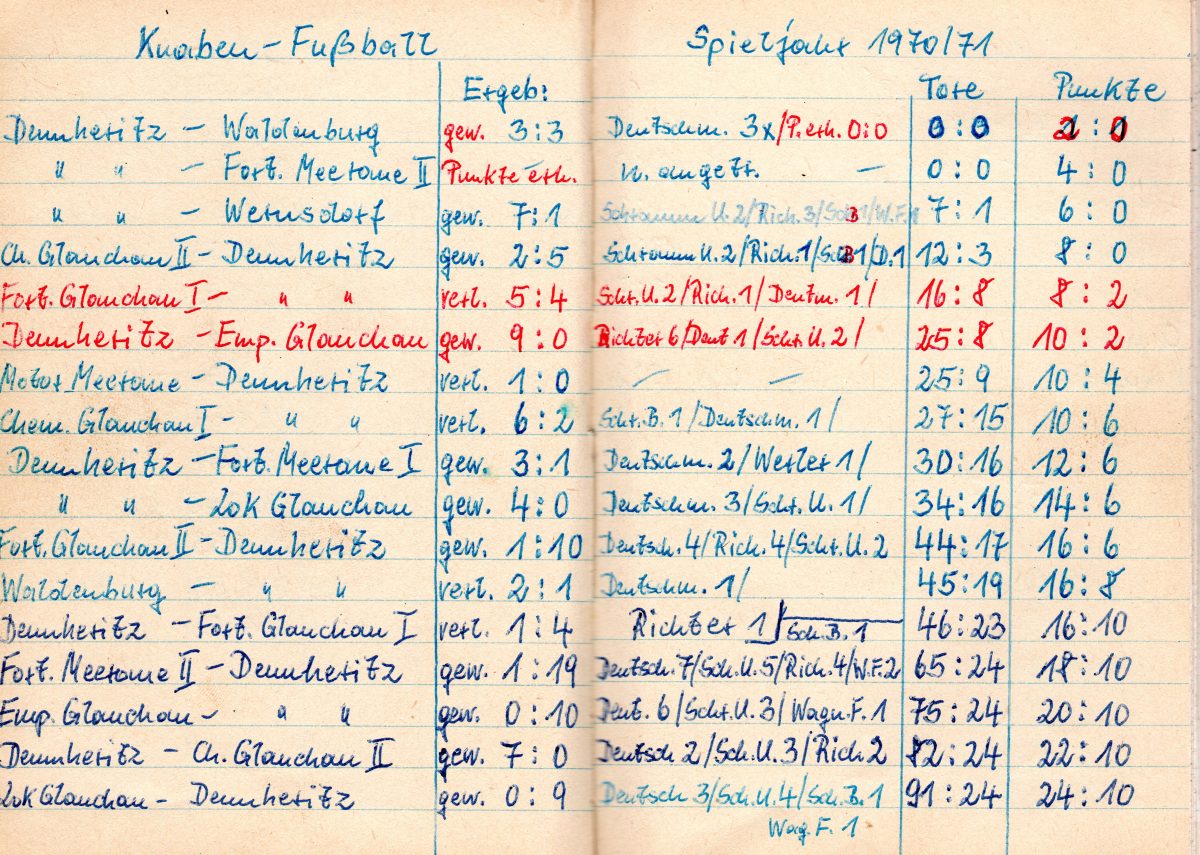 Knaben - Fußball Spieljahr 1970/71
Ergeb: Tore Punkte
Dennheritz - Waldenburg gew. 3:3 Deutschm. 3x/P. erh. 0:0 0:0 2:0
" " - Fort. Meerane II Punkte erh. n. angetr. — 0:0 4:0
" " - Wernsdorf gew. 7:1 Schramm U. 2/Rich. 3/Sch. B 1/W.F. 1 7:1 6:0
Ch. Glauchau II - Dennheritz gew. 2:5 Schramm U. 2/Rich. 1/Sch B 1/D. 1 12:3 8:0
Fort. Glauchau I - " " verl. 5:4 Schr. U. 2/Rich. 1/Deutm. 1/ 16:8 8:2
Dennheritz - Emp. Glauchau gew. 9:0 Richter 6/Deut 1/Schr. U. 2/ 25:8 10:2
Motor Meerane - Dennheritz verl. 1:0 — — 25:9 10:4
Chem. Glauchau I - " " verl. 6:2 Schr. B. 1/Deutschm. 1/ 27:15 10:6
Dennheritz - Fort. Meerane I gew. 3:1 Deutschm. 2/Werler 1/ 30:16 12:6
" " - Lok Glauchau gew. 4:0 Deutschm. 3/Schr. U. 1/ 34:16 14:6
Fort. Glauchau II - Dennheritz gew. 1:10 Deutsch. 4/Rich. 4/Schr. U. 2 44:17 16:6
Waldenburg - " " verl. 2:1 Deutschm. 1/ 45:19 16:8
Dennheritz - Fort. Glauchau I verl. 1:4 Richter 1/Sch. B. 1 46:23 16:10
Fort. Meerane II - Dennheritz gew. 1:19 Deutsch. 7/Sch. U. 5/Rich. 4/W.F. 2 65:24 18:10
Emp. Glauchau - " " gew. 0:10 Deut. 6/Schr. U. 3/Wagn. F. 1 75:24 20:10
Dennheritz - Ch. Glauchau II gew. 7:0 Deutsch 2/Sch. U. 3/Rich 2 82:24 22:10
Lok Glauchau - Dennheritz gew. 0:9 Deutsch 3/Sch. U. 4/Sch. B. 1 91:24 24:10
Wag. F. 1